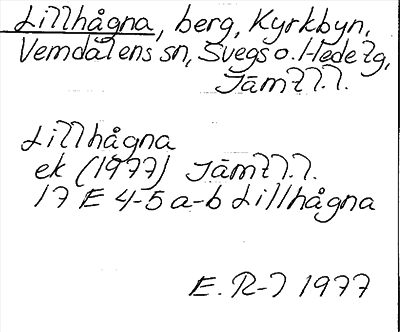 Lillhågna, berg, Kyrkbyn,
Vemdalens sn, Svegs o. Hede tg,
Jämtl.l.
Lillhågna
ek (1977) Jämtl.l.
17 E 4-5 a-b Lillhågna
E. R-J 1977